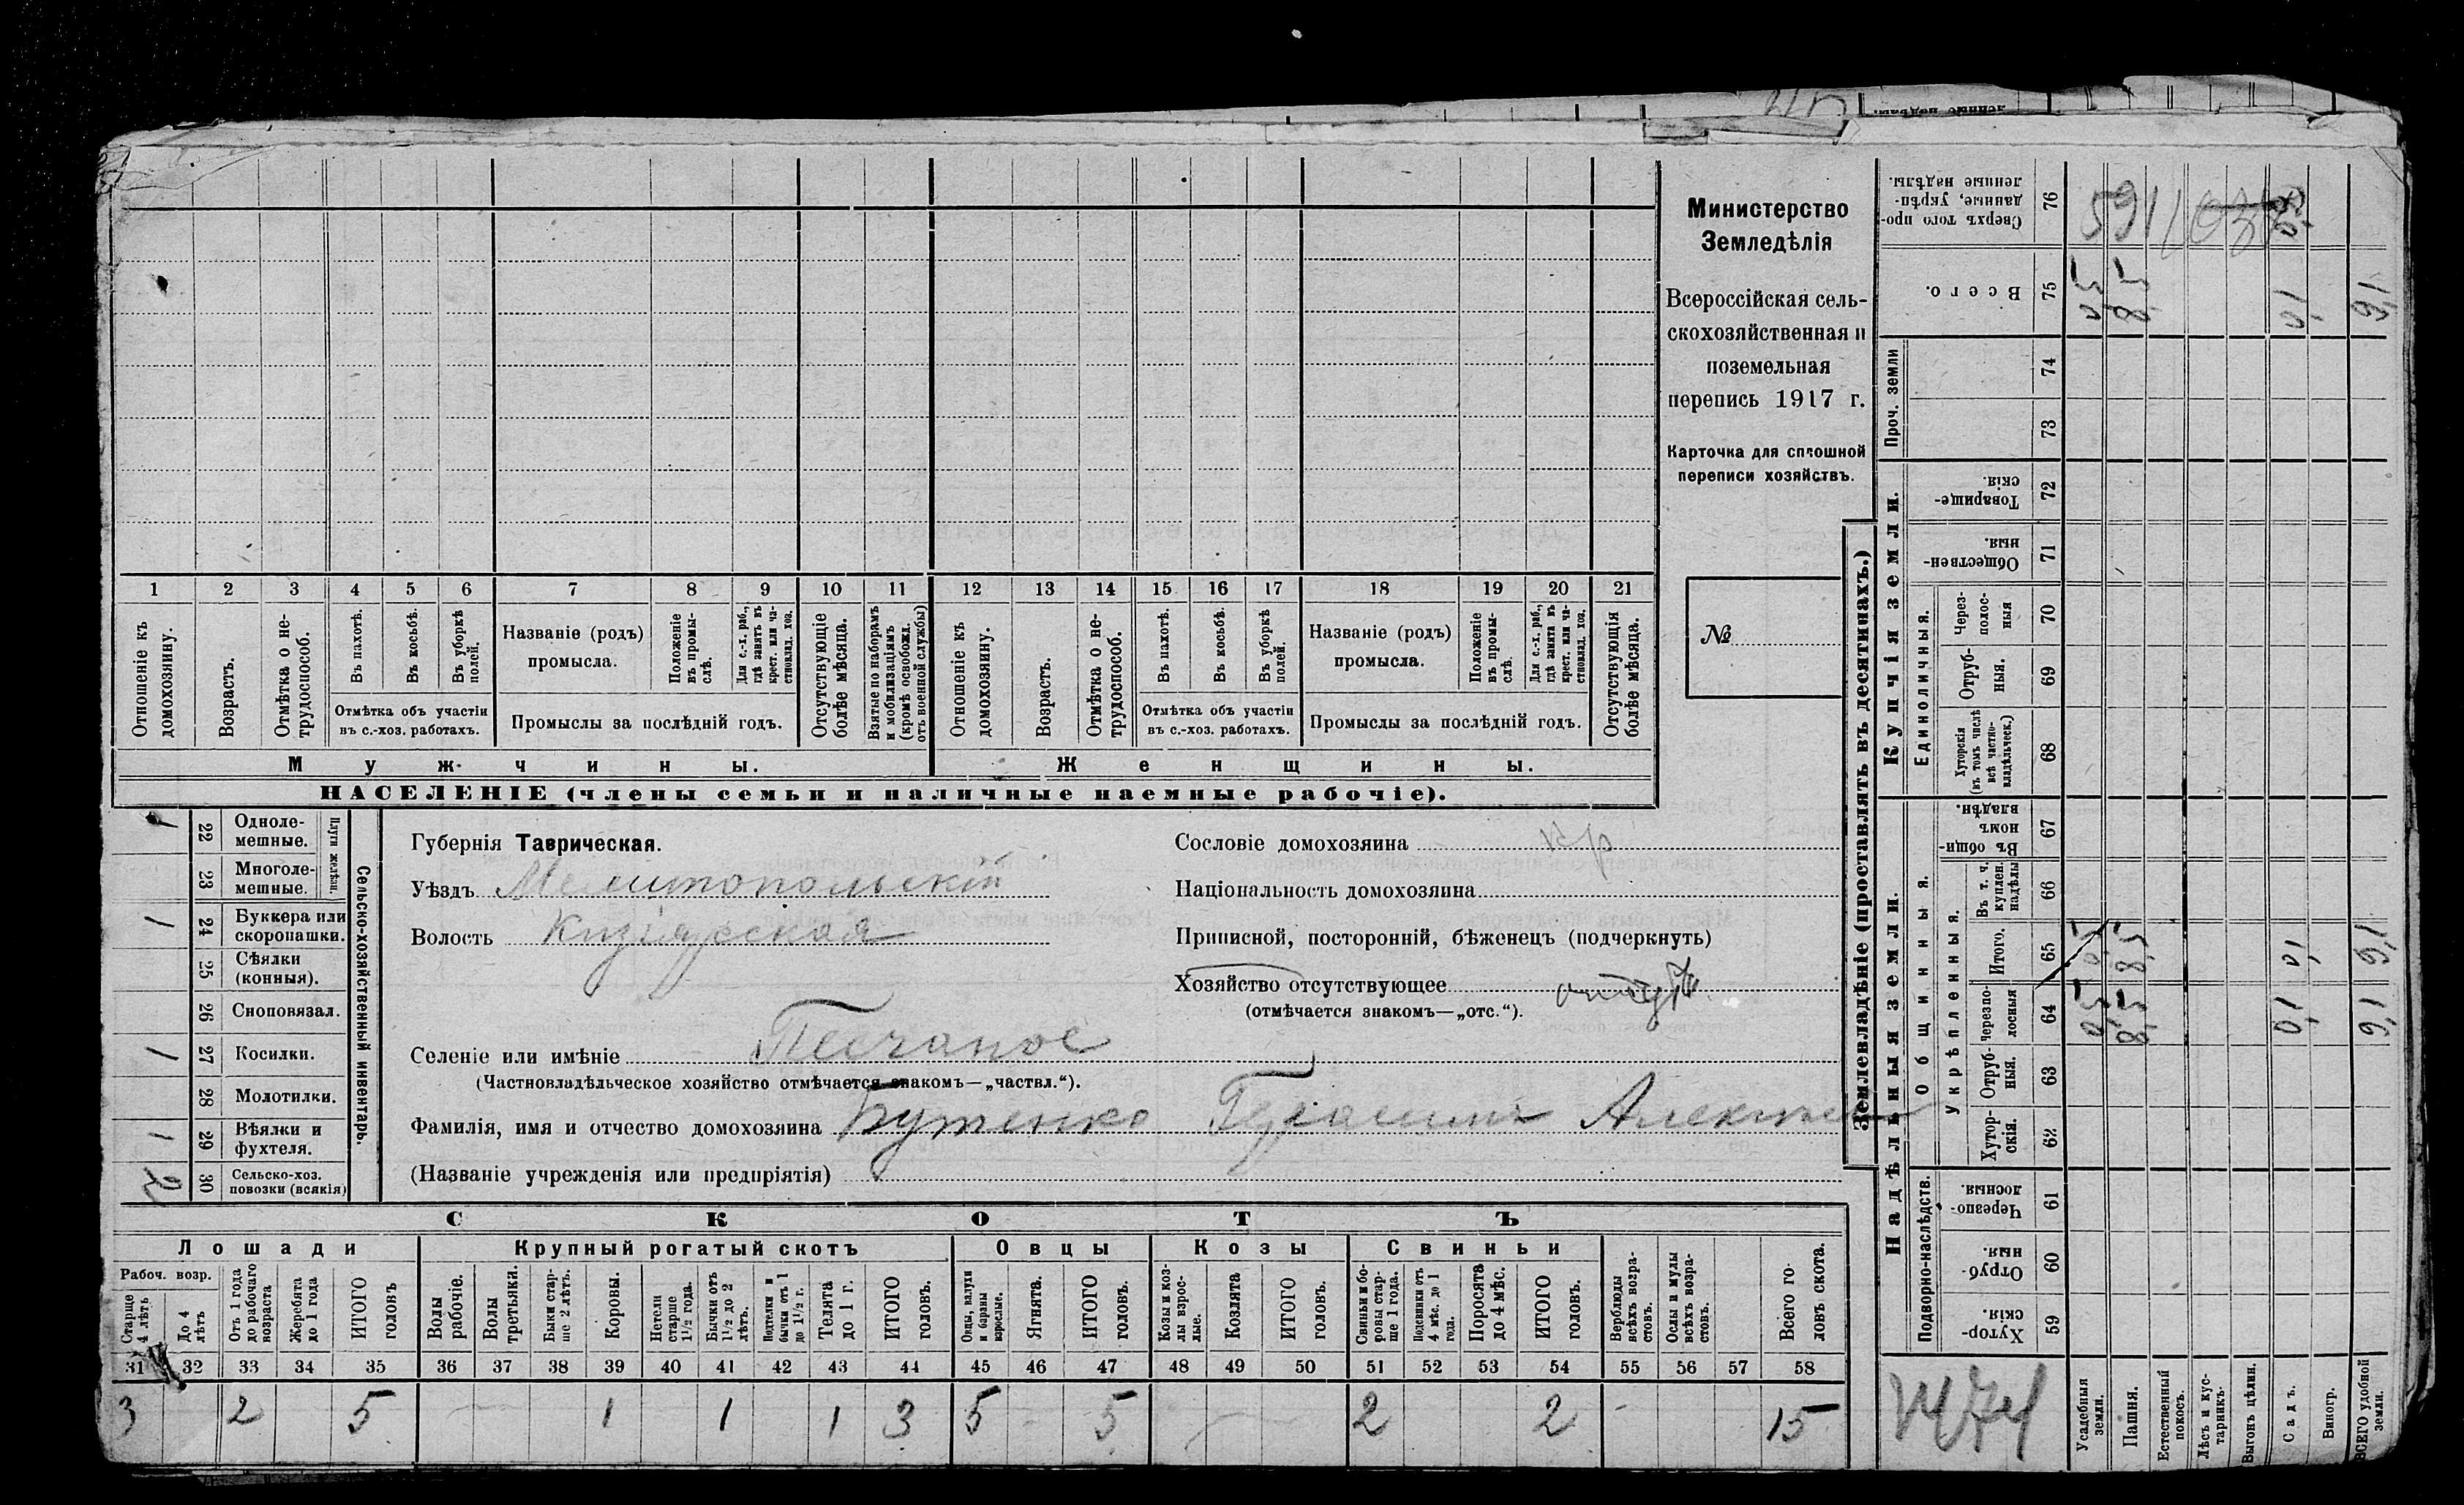 Министерство
Земледѣлія
Всероссійская сель-
скохозяйственная и
поземельная
перепись 1917 г.
Карточка для сплошной
переписи хозяйствъ.
№
1 2 3 4 5 6 7 8 9 10 11 12 13 14 15 16 17 18 19 20 21
Отношеніе къ домохозяину.
Возрастъ.
Отмѣтка о не-трудоспособ.
Въ пахотѣ.
Въ косьбѣ.
Въ уборкѣ полей.
Отмѣтка объ участіи
въ с.-хоз. работахъ.
Названіе (родъ)
промысла.
Положеніе въ промы-слѣ.
Для с.-х. раб., гдѣ занятъ въ крест. или ча-стновлад. хоз.
Промыслы за послѣдній годъ.
Отсутствующіе болѣе мѣсяца.
Взятые по наборамъ и мобилизаціямъ (кромѣ освобожд. отъ военной службы)
Отношеніе къ домохозяину.
Возрастъ.
Отмѣтка о не-трудоспособ.
Въ пахотѣ.
Въ косьбѣ.
Въ уборкѣ полей.
Отмѣтка объ участіи
въ с.-хоз. работахъ.
Названіе (родъ)
промысла.
Положеніе въ промы-слѣ.
Для с.-х. раб., гдѣ занята въ крест. или ча-стновлад. хоз.
Промыслы за послѣдній годъ.
Отсутствующія болѣе мѣсяца.
Мужчины.
Женщины.
НАСЕЛЕНІЕ (члены семьи и наличные наемные рабочіе).
Сельско-хозяйственный инвентарь.
Плуги желѣзн.
1 22 Одноле-мешные.
23 Многоле-мешные.
1 24 Буккера или скоропашки.
25 Сѣялки (конныя).
26 Сноповязал.
1 27 Косилки.
28 Молотилки.
1 29 Вѣялки и фухтеля.
2 30 Сельско-хоз. повозки (всякія)
Губернія Таврическая.
Уѣздъ Мелитопольскій
Волость Кизіярская
Селеніе или имѣніе Песчаное
(Частновладѣльческое хозяйство отмѣчается знакомъ—„частвл.“).
Фамилія, имя и отчество домохозяина Бутенко Герасимъ Алексѣев
(Названіе учрежденія или предпріятія)
Сословіе домохозяина кр
Національность домохозяина
Приписной, посторонній, бѣженецъ (подчеркнуть)
Хозяйство отсутствующее
(отмѣчается знакомъ—„отс.“).
СКОТЪ
Лошади
Крупный рогатый скотъ
Овцы
Козы
Свиньи
Рабоч. возр.
Старше 4 лѣтъ
До 4 лѣтъ
Отъ 1 года до рабочаго возраста
Жеребята до 1 года
ИТОГО головъ
Волы рабочіе.
Волы третьяки.
Быки стар-ше 2 лѣтъ.
Коровы.
Нетели старше 1½ года.
Бычки отъ 1½ до 2 лѣтъ.
Подтелки и бычки отъ 1 до 1½ г.
Телята до 1 г.
ИТОГО головъ.
Овцы, валухи и бараны взрослые.
Ягнята.
ИТОГО головъ.
Козы и коз-лы взрос-лые.
Козлята
ИТОГО головъ.
Свиньи и бо-ровы стар-ше 1 года.
Подсвинки отъ 4 мѣс. до 1 года.
Поросята до 4 мѣс.
ИТОГО головъ.
Верблюды всѣхъ возра-стовъ.
Ослы и мулы всѣхъ возра-стовъ.
Всего го-ловъ скота.
31 32 33 34 35 36 37 38 39 40 41 42 43 44 45 46 47 48 49 50 51 52 53 54 55 56 57 58
3 2 5 1 1 1 3 5 5 2 2 15
Землевладѣніе (проставлять въ десятинахъ.)
Надѣльныя земли.
Купчія земли.
Проч. земли
Подворно-наслѣдств.
Общинныя.
Укрѣпленныя.
Единоличныя.
Хутор-скія. 59
Отруб-ныя. 60
Черезпо-лосныя. 61
Хутор-скія. 62
Отруб-ныя. 63
Черезпо-лосныя 64
Итого. 65
Въ т. ч. куплен. надѣлы 66
Въ общин-номъ владѣн. 67
Хуторскія (въ томъ числѣ всѣ частно-владѣльческ.) 68
Отруб-ныя. 69
Через-полос-ныя 70
Обществен-ныя. 71
Товарище-скія. 72
73
74
Всего. 75
Сверхъ того про-данные, укрѣп-ленные надѣлы. 76
Усадебныя земли.
Пашня.
Естественный покосъ.
Лѣсъ и кус-тарникъ.
Выгонъ цѣлин.
Садъ.
Виногр.
ВСЕГО удобной земли.
0,5 8,5 0,1 9,1
0,5 8,5 0,1 9,1
0,5 8,5 0,1 9,1